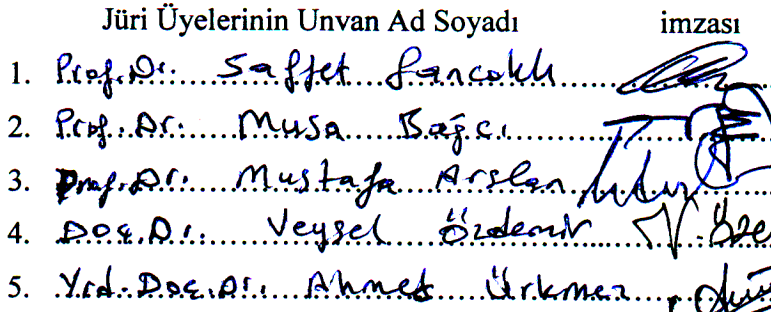 Jüri Üyelerinin Unvan Ad Soyadı imzası
1. Prof. Dr. Saffet Sancaklı
2. Prof. Dr. Musa Bağcı
3. Prof. Dr. Mustafa Arslan
4. Doç. Dr. Veysel Özdemir
5. Yrd. Doç. Dr. Ahmet Ürkmez